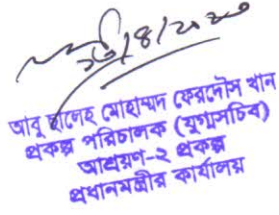 ২৬/৪/২০২০
আবু ছালেহ মোহাম্মদ ফেরদৌস খান
প্রকল্প পরিচালক (যুগ্মসচিব)
আশ্রয়ণ-২ প্রকল্প
প্রধানমন্ত্রীর কার্যালয়